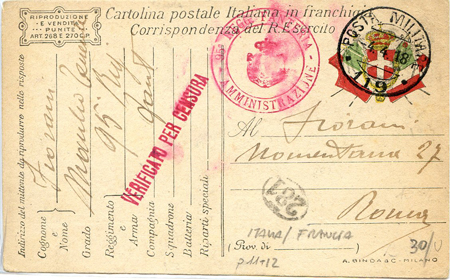 RIPRODUZIONE
E VENDITA
PUNITE
ART. 268 E 270 C.P.
Cartolina postale Italiana in franchigia
Corrispondenza del R. Esercito
POSTA MILITARE
119
AMMINISTRAZIONE
VERIFICATO PER CENSURA
Indirizzo del mittente da riprodurre nelle risposte
Cognome Fiorani
e Nome
Grado
Reggimento 95
e Arma
Compagnia
Squadrone
Batteria
Riparti speciali
Al Fiorani
Nomentana 27
Roma
287
ITALIA/FRANCIA
(Prov. di )
p 11+12
30/
A. BINDA & C. - MILANO